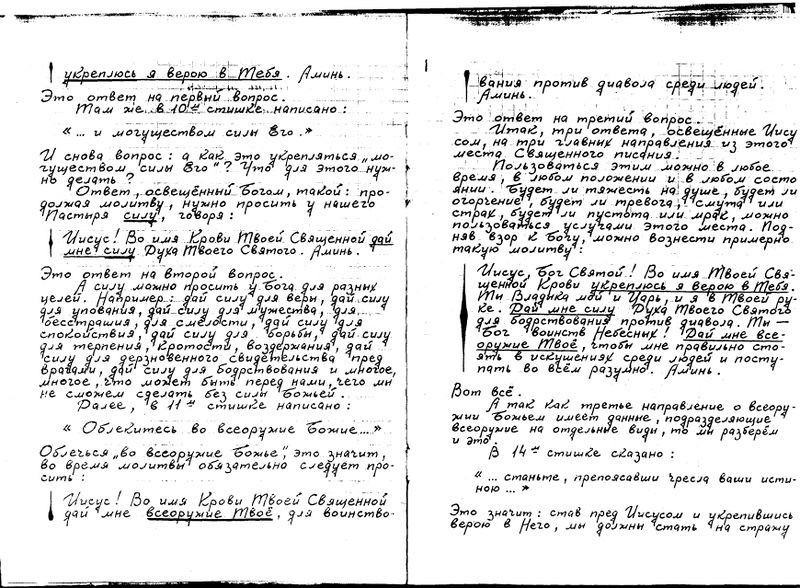 укреплюсь я верою в Тебя. Аминь.
Это ответ на первый вопрос.
Там же в 10ом стишке написано:
«... и могуществом силы Его.»
И снова вопрос: а как это укрепляться „мо-
гуществом силы Его"? Что для этого нуж-
но делать?
Ответ, освещённый Богом, такой: про-
должая молитву, нужно просить у нашего
Пастыря силу, говоря:
Иисус! Во имя Крови Твоей Священной дай
мне силу Духа Твоего Святого. Аминь.
Это ответ на второй вопрос.
А силу можно просить у Бога для разных
целей. Например: дай силу для веры, дай силу
для упования, дай силу для мужества, для
бесстрашия, для смелости, дай силу для
спокойствия, дай силу для борьбы, дай силу
для терпения, кротости, воздержания, дай
силу для дерзновенного свидетельства пред
врагами, дай силу для бодрствования и многое,
многое, что может быть перед нами, чего мы
не сможем сделать без силы Божьей.
Далее, в 11ом стишке написано:
« Облекитесь во всеоружие Божие...»
Облечься „во всеоружие Божье", это значит,
во время молитвы обязательно следует про-
сить:
Иисус! Во имя Крови Твоей Священной
дай мне всеоружие Твоё, для воинство-
вания против диавола среди людей.
Аминь.
Это ответ на третий вопрос.
Итак, три ответа, освещённые Иису
сом, на три главных направления из этого
места Священного писания.
Пользоваться этим можно в любое
время, в любом положении и в любом состо
янии. Будет ли тяжесть на душе, будет ли
огорчение, будет ли тревога, смута или
страх, будет ли пустота или мрак, можно
пользоваться услугами этого места. Под-
няв взор к Богу, можно вознести примерно
такую молитву:
Иисус, Бог Святой! Во имя Твоей Свя-
щенной Крови укреплюсь я верою в Тебя.
Ты Владыка мой и Царь, и я в Твоей ру-
ке. Дай мне силу Духа Твоего Святого
для бодрствования против диавола. Ты —
Бог воинств Небесных! Дай мне все-
оружие Твоё, чтобы мне правильно сто-
ять в искушениях среди людей и посту-
пать во всём разумно. Аминь.
Вот всё.
А так как третье направление о всеору-
жии Божьем имеет данные, подразделяющие
всеоружие на отдельные виды, то мы разберём
и это.
В 14ом стишке сказано:
«... станьте, препоясавши чресла ваши исти-
ною...»
Это значит: став пред Иисусом и укрепившись
верою в Него, мы должны стать на стражу